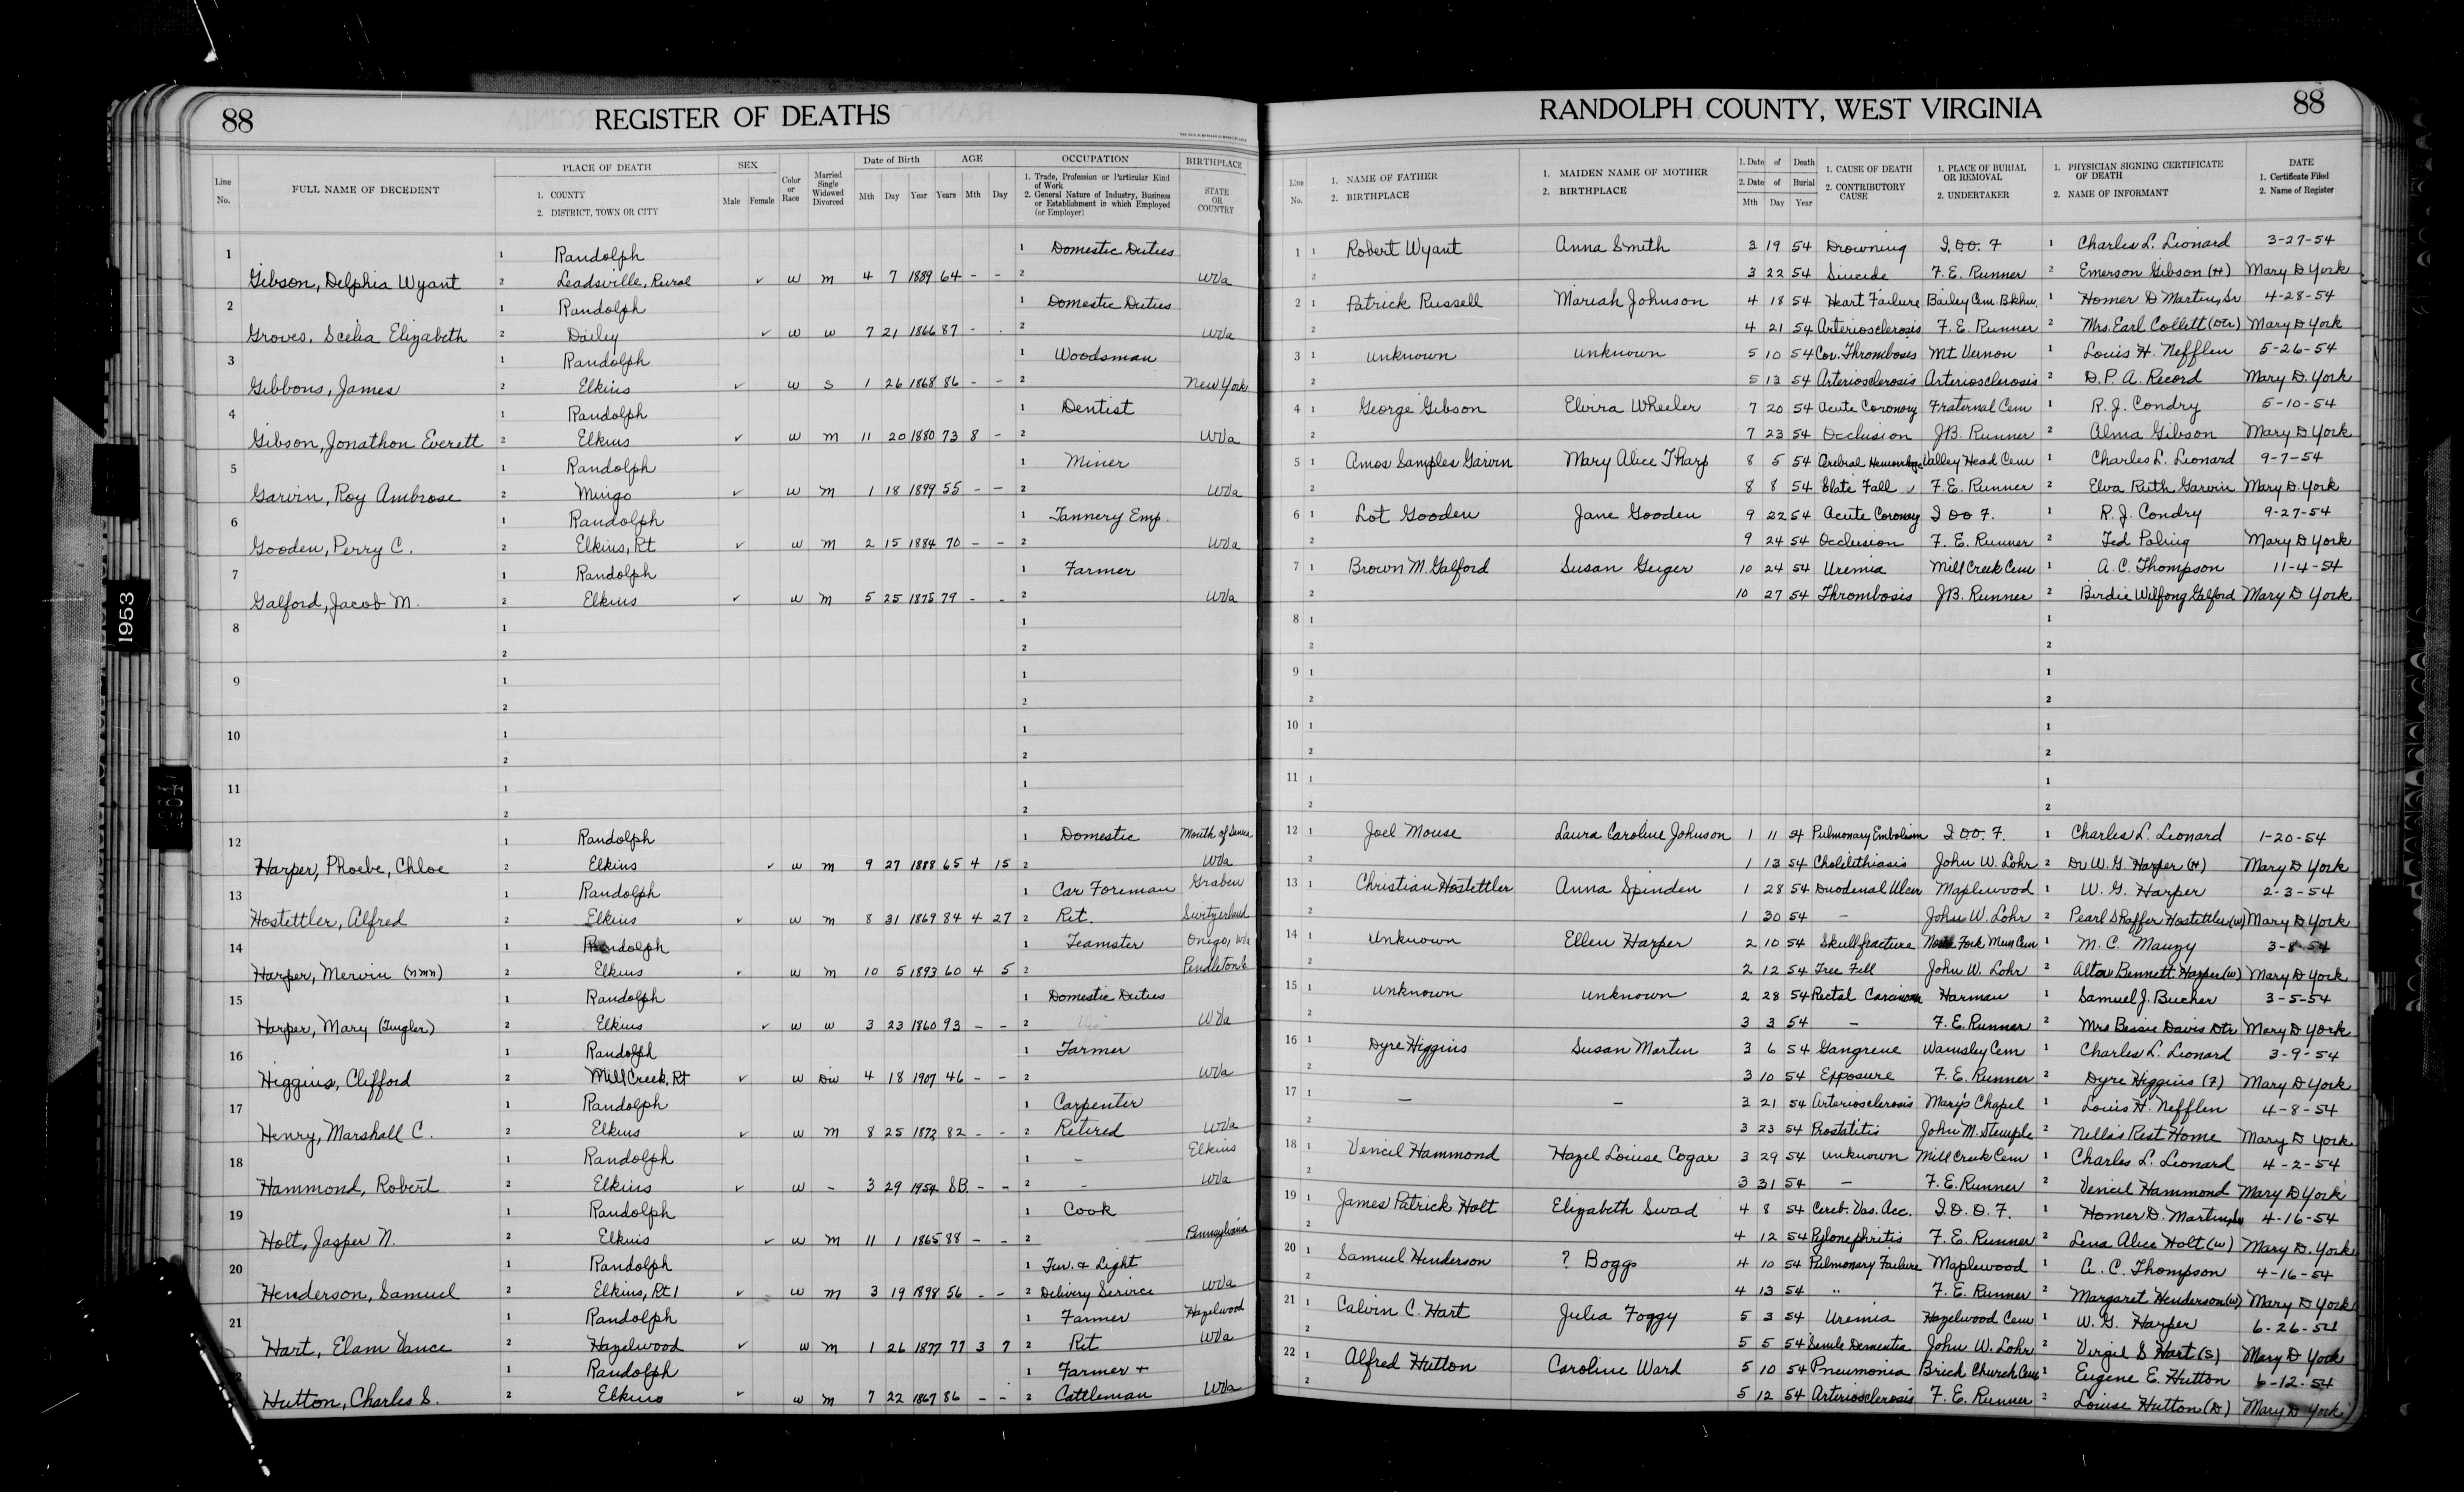 88
REGISTER OF DEATHS
Line No.
FULL NAME OF DECEDENT
PLACE OF DEATH
1. COUNTY
2. DISTRICT, TOWN OR CITY
SEX
Male Female
Color or Race
Married Single Widowed Divorced
Date of Birth
Mth Day Year
AGE
Years Mth Day
OCCUPATION
1. Trade, Profession or Particular Kind of Work
2. General Nature of Industry, Business or Establishment in which Employed (or Employer)
BIRTHPLACE
STATE OR COUNTRY
1 1 Randolph 1 Domestic Duties
Gibson, Delphia Wyant 2 Leadsville, Rural ✓ w m 4 7 1889 64 - - 2 WVa
2 1 Randolph 1 Domestic Duties
Groves, Scelia Elizabeth 2 Dailey ✓ w w 7 21 1866 87 - . 2 WVa
3 1 Randolph 1 Woodsman
Gibbons, James 2 Elkins ✓ w s 1 26 1868 86 - - 2 New York
4 1 Randolph 1 Dentist
Gibson, Jonathon Everett 2 Elkins ✓ w m 11 20 1880 73 8 - 2 WVa
5 1 Randolph 1 Miner
Garvin, Roy Ambrose 2 Mingo ✓ w m 1 18 1899 55 - - 2 WVa
6 1 Randolph 1 Tannery Emp.
Gooden, Perry C. 2 Elkins, Rt ✓ w m 2 15 1884 70 - - 2 WVa
7 1 Randolph 1 Farmer
Galford, Jacob M. 2 Elkins ✓ w m 5 25 1875 79 - - 2 WVa
8 1 1
2 2
9 1 1
2 2
10 1 1
2 2
11 1 1
2 2
12 1 Randolph 1 Domestic Mouth of Seneca
Harper, Phoebe, Chloe 2 Elkins ✓ w m 9 27 1888 65 4 15 2 WVa
13 1 Randolph 1 Car Foreman Graben
Hostettler, Alfred 2 Elkins ✓ w m 8 31 1869 84 4 27 2 Ret. Switzerland
14 1 Randolph 1 Teamster Onego, WVa
Harper, Mervin (nmn) 2 Elkins ✓ w m 10 5 1893 60 4 5 2 Pendleton
15 1 Randolph 1 Domestic Duties
Harper, Mary 2 Elkins ✓ w w 3 23 1860 93 - - 2 WVa
16 1 Randolph 1 Farmer
Higgins, Clifford 2 Mill Creek, Rt ✓ w Div 4 18 1907 46 - - 2 WVa
17 1 Randolph 1 Carpenter
Henry, Marshall C. 2 Elkins ✓ w m 8 25 1872 82 - - 2 Retired WVa
18 1 Randolph 1 - Elkins
Hammond, Robert 2 Elkins ✓ w - 3 29 1954 SB. - - 2 - WVa
19 1 Randolph 1 Cook
Holt, Jasper N. 2 Elkins ✓ w m 11 1 1865 88 - - 2 Pennsylvania
20 1 Randolph 1 Fur. & Light
Henderson, Samuel 2 Elkins, Rt 1 ✓ w m 3 19 1898 56 - - 2 Delivery Service WVa
21 1 Randolph 1 Farmer Hazelwood
Hart, Elam Vance 2 Hazelwood ✓ w m 1 26 1877 77 3 7 2 Ret WVa
1 Randolph 1 Farmer +
Hutton, Charles S. 2 Elkins ✓ w m 7 22 1867 86 - - 2 Cattleman WVa
1953
RANDOLPH COUNTY, WEST VIRGINIA
88
Line No.
1. NAME OF FATHER
2. BIRTHPLACE
1. MAIDEN NAME OF MOTHER
2. BIRTHPLACE
1. Date of Death
2. Date of Burial
Mth Day Year
1. CAUSE OF DEATH
2. CONTRIBUTORY CAUSE
1. PLACE OF BURIAL OR REMOVAL
2. UNDERTAKER
1. PHYSICIAN SIGNING CERTIFICATE OF DEATH
2. NAME OF INFORMANT
DATE
1. Certificate Filed
2. Name of Register
1 1 Robert Wyant Anna Smith 3 19 54 Drowning I.O.O.F 1 Charles L. Leonard 3-27-54
2 3 22 54 Siucide F. E. Runner 2 Emerson Gibson (H) Mary D York
2 1 Patrick Russell Mariah Johnson 4 18 54 Heart Failure Bailey Cem. Bkhn. 1 Homer D Martin, Sr 4-28-54
2 4 21 54 Arteriosclerosis F. E. Runner 2 Mrs. Earl Collett (Dtr) Mary D York
3 1 Unknown Unknown 5 10 54 Cor. Thrombosis Mt Vernon 1 Louis H. Nefflen 5-26-54
2 5 13 54 Arteriosclerosis Arteriosclerosis 2 D. P. A. Record Mary D. York
4 1 George Gibson Elvira Wheeler 7 20 54 Acute Coronary Fraternal Cem 1 R. J. Condry 5-10-54
2 7 23 54 Occlusion J B. Runner 2 Alma Gibson Mary D York
5 1 Amos Samples Garvin Mary Alice Tharp 8 5 54 Cerebral Hemorrhage Valley Head Cem 1 Charles L. Leonard 9-7-54
2 8 8 54 Slate Fall ✓ F. E. Runner 2 Elva Ruth Garvin Mary D. York
6 1 Lot Gooden Jane Gooden 9 22 54 Acute Coronary I OO F. 1 R. J. Condry 9-27-54
2 9 24 54 Occlusion F. E. Runner 2 Ted Paling Mary D York
7 1 Brown M. Galford Susan Geiger 10 24 54 Uremia Mill Creek Cem 1 A. C. Thompson 11-4-54
2 10 27 54 Thrombosis J B. Runner 2 Birdie Wilfong Galford Mary D York
8 1 1
2 2
9 1 1
2 2
10 1 1
2 2
11 1 1
2 2
12 1 Joel Mouse Laura Caroline Johnson 1 11 54 Pulmonary Embolism I OO. F. 1 Charles L. Leonard 1-20-54
2 1 13 54 Cholilithiasis John W. Lohr 2 Dr W. G. Harper (H) Mary D York
13 1 Christian Hostettler Anna Spinden 1 28 54 Duodenal Ulcer Maplewood 1 W. G. Harper 2-3-54
2 1 30 54 - John W. Lohr 2 Pearl Shaffer Hostettler (W) Mary D York
14 1 Unknown Ellen Harper 2 10 54 Skull fracture North Fork Mem Cem 1 M. C. Mauzy 3-8-54
2 2 12 54 Tree Fell John W. Lohr 2 Alta Bennett Harper (W) Mary D York
15 1 Unknown Unknown 2 28 54 Rectal Carcinoma Harman 1 Samuel J. Bucher 3-5-54
2 3 3 54 - F. E. Runner 2 Mrs Bessie Davis Dtr Mary D York
16 1 Dyre Higgins Susan Martin 3 6 54 Gangrene Wamsley Cem 1 Charles L. Leonard 3-9-54
2 3 10 54 Exposure F. E. Runner 2 Dyre Higgins (F) Mary D York
17 1 - - 3 21 54 Arteriosclerosis Mary's Chapel 1 Louis H. Nefflen 4-8-54
2 3 23 54 Prostatitis John M. Stemple 2 Nella's Rest Home Mary D York
18 1 Vencil Hammond Hazel Louise Cogar 3 29 54 Unknown Mill Creek Cem 1 Charles L. Leonard 4-2-54
2 3 31 54 - F. E. Runner 2 Vencil Hammond Mary D York
19 1 James Patrick Holt Elizabeth Swad 4 8 54 Cereb. Vas. Acc. I. O. O. F. 1 Homer D. Martin, Sr 4-16-54
2 4 12 54 Pylonephritis F. E. Runner 2 Lena Alice Holt (W) Mary D. York
20 1 Samuel Henderson ? Boggs 4 10 54 Pulmonary Failure Maplewood 1 A. C. Thompson 4-16-54
2 4 13 54 " F. E. Runner 2 Margaret Henderson (W) Mary D York
21 1 Calvin C. Hart Julia Foggy 5 3 54 Uremia Hazelwood Cem 1 W. G. Harper 6-26-54
2 5 5 54 Senile Dementia John W. Lohr 2 Virgil S Hart (S) Mary D York
22 1 Alfred Hutton Caroline Ward 5 10 54 Pneumonia Brick Church Cem 1 Eugene E. Hutton 6-12-54
2 5 12 54 Arteriosclerosis F. E. Runner 2 Louise Hutton (D) Mary D York